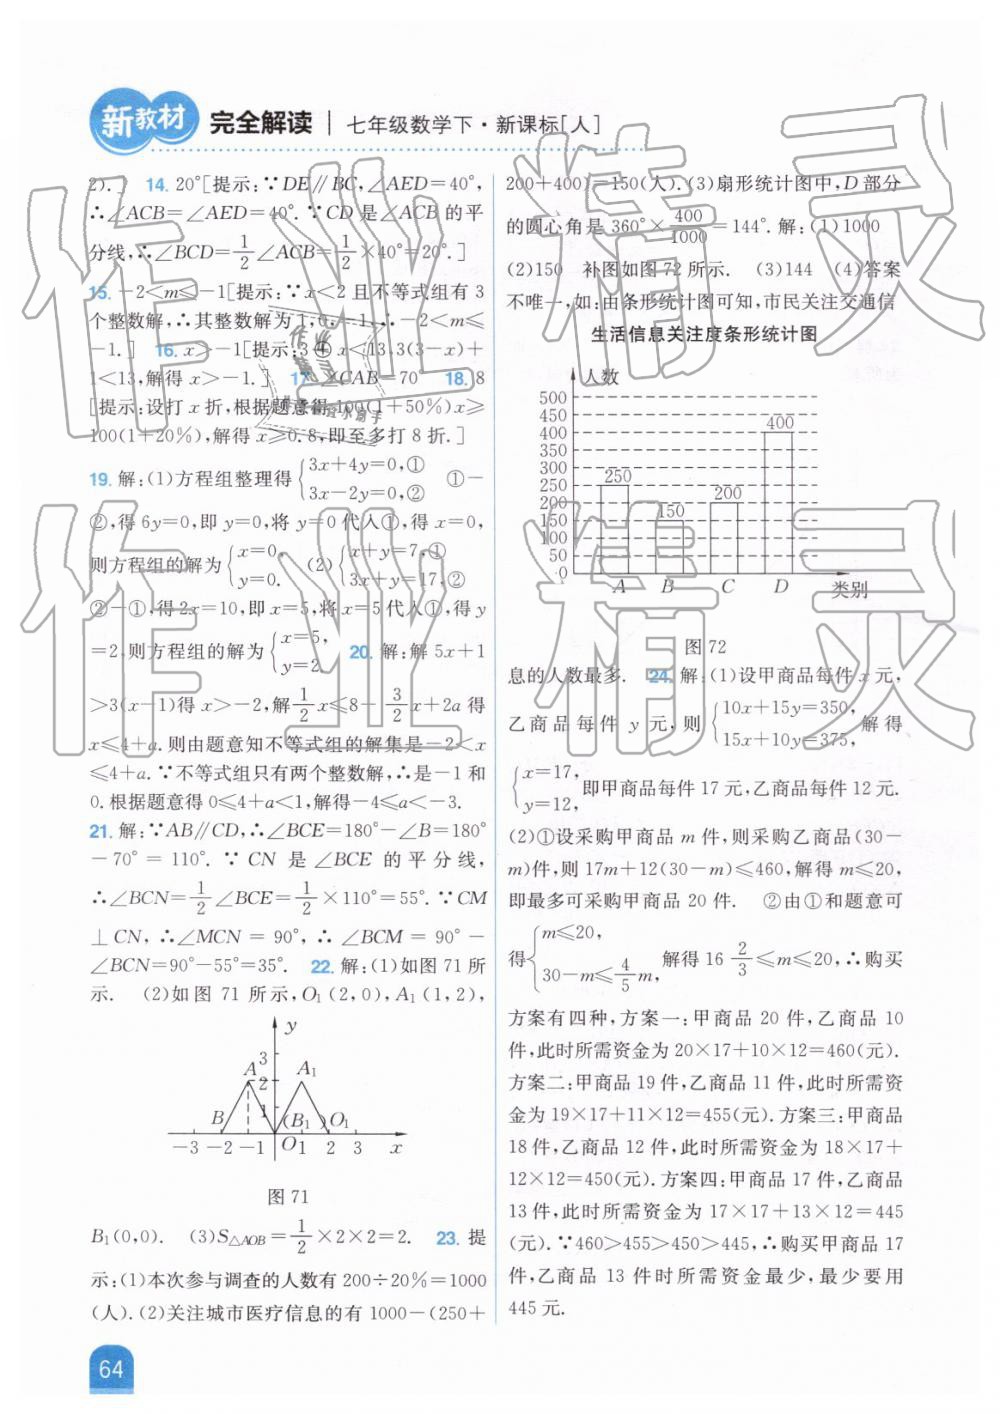 新教材 完全解读 七年级数学下·新课标[人]
2).] 14. 20°[提示:∵DE∥BC,∠AED=40°,
∴∠ACB=∠AED=40°.∵CD 是∠ACB 的平
分线,∴∠BCD=1/2∠ACB=1/2×40°=20°.]
15. -2<m≤-1[提示:∵x<2 且不等式组有 3
个整数解,∴其整数解为 1,0,-1,∴-2<m≤
-1.] 16. x>-1[提示:3⊕x<13,3(3-x)+
1<13,解得 x>-1.] 17. ∠CAB=70° 18. 8
[提示:设打 x 折,根据题意得 100(1+50%)x≥
100(1+20%),解得 x≥0.8,即至多打 8 折.]
19. 解:(1)方程组整理得{3x+4y=0,① 3x-2y=0,② ①-
②,得 6y=0,即 y=0,将 y=0 代入①,得 x=0,
则方程组的解为{x=0, y=0. (2){x+y=7,① 3x+y=17,②
②-①,得 2x=10,即 x=5,将 x=5 代入①,得 y
=2,则方程组的解为{x=5, y=2. 20. 解:解 5x+1
>3(x-1)得 x>-2,解1/2x≤8-3/2x+2a 得
x≤4+a.则由题意知不等式组的解集是-2<x
≤4+a.∵不等式组只有两个整数解,∴是-1 和
0.根据题意得 0≤4+a<1,解得-4≤a<-3.
21. 解:∵AB∥CD,∴∠BCE=180°-∠B=180°
-70°=110°.∵CN 是∠BCE 的平分线,
∴∠BCN=1/2∠BCE=1/2×110°=55°.∵CM
⊥CN,∴∠MCN=90°,∴∠BCM=90°-
∠BCN=90°-55°=35°. 22. 解:(1)如图 71 所
示. (2)如图 71 所示,O₁(2,0),A₁(1,2),
y
3
A 2 A₁
B 1 (B₁) O₁
-3 -2 -1 O 1 2 3 x
图 71
B₁(0,0). (3)S△AOB=1/2×2×2=2. 23. 提
示:(1)本次参与调查的人数有 200÷20%=1000
(人).(2)关注城市医疗信息的有 1000-(250+
200+400)=150(人).(3)扇形统计图中,D 部分
的圆心角是 360°×400/1000=144°.解:(1)1000
(2)150 补图如图 72 所示. (3)144 (4)答案
不唯一,如:由条形统计图可知,市民关注交通信
生活信息关注度条形统计图
人数
500
450
400 400
350
300
250 250
200 200
150 150
100
50
0 A B C D 类别
图 72
息的人数最多. 24. 解:(1)设甲商品每件 x 元,
乙商品每件 y 元,则{10x+15y=350, 15x+10y=375, 解得
{x=17, y=12, 即甲商品每件 17 元,乙商品每件 12 元.
(2)①设采购甲商品 m 件,则采购乙商品(30-
m)件,则 17m+12(30-m)≤460,解得 m≤20,
即最多可采购甲商品 20 件. ②由①和题意可
得{m≤20, 30-m≤4/5m, 解得 16 2/3≤m≤20,∴购买
方案有四种,方案一:甲商品 20 件,乙商品 10
件,此时所需资金为 20×17+10×12=460(元).
方案二:甲商品 19 件,乙商品 11 件,此时所需资
金为 19×17+11×12=455(元).方案三:甲商品
18 件,乙商品 12 件,此时所需资金为 18×17+
12×12=450(元).方案四:甲商品 17 件,乙商品
13 件,此时所需资金为 17×17+13×12=445
(元).∵460>455>450>445,∴购买甲商品 17
件,乙商品 13 件时所需资金最少,最少要用
445 元.
64
作业精灵
作业精灵